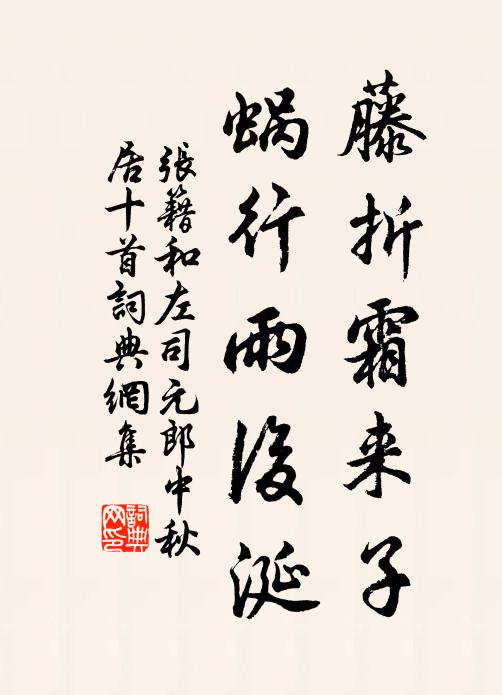 藤折霜来子
蜗行雨後涎
張籍和左司元郎中秋
居十首詞典網集
詞典
网印